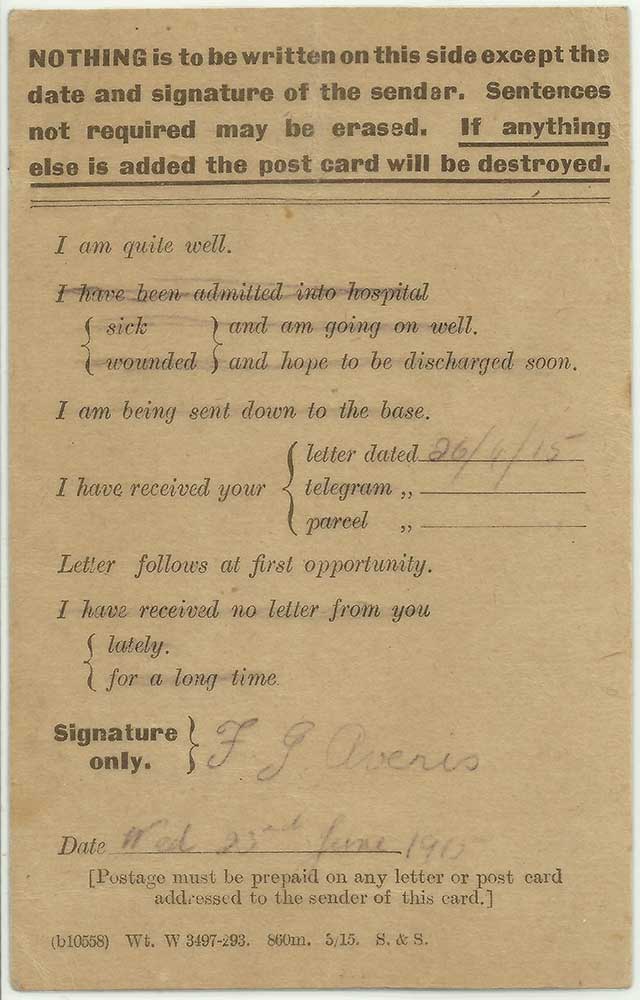 NOTHING is to be written on this side except the
date and signature of the sender. Sentences
not required may be erased. If anything
else is added the post card will be destroyed.
I am quite well.
I have been admitted into hospital
{ sick } and am going on well.
{ wounded } and hope to be discharged soon.
I am being sent down to the base.
letter dated 26/ /15
I have received your { telegram „
parcel „
Letter follows at first opportunity.
I have received no letter from you
{ lately.
{ for a long time.
Signature
only. } F G Averis
Date Wed 23rd June 1915
[Postage must be prepaid on any letter or post card
addressed to the sender of this card.]
(b10558) Wt. W 3497-293. 860m. 5/15. S. & S.